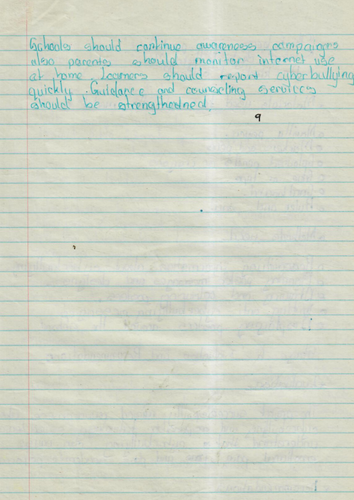 Schools should continue awareness campaigns
also parents should monitor internet use
at home Learners should report cyberbullying
quickly. Guidance and counseling services
should be strengthedned.
9